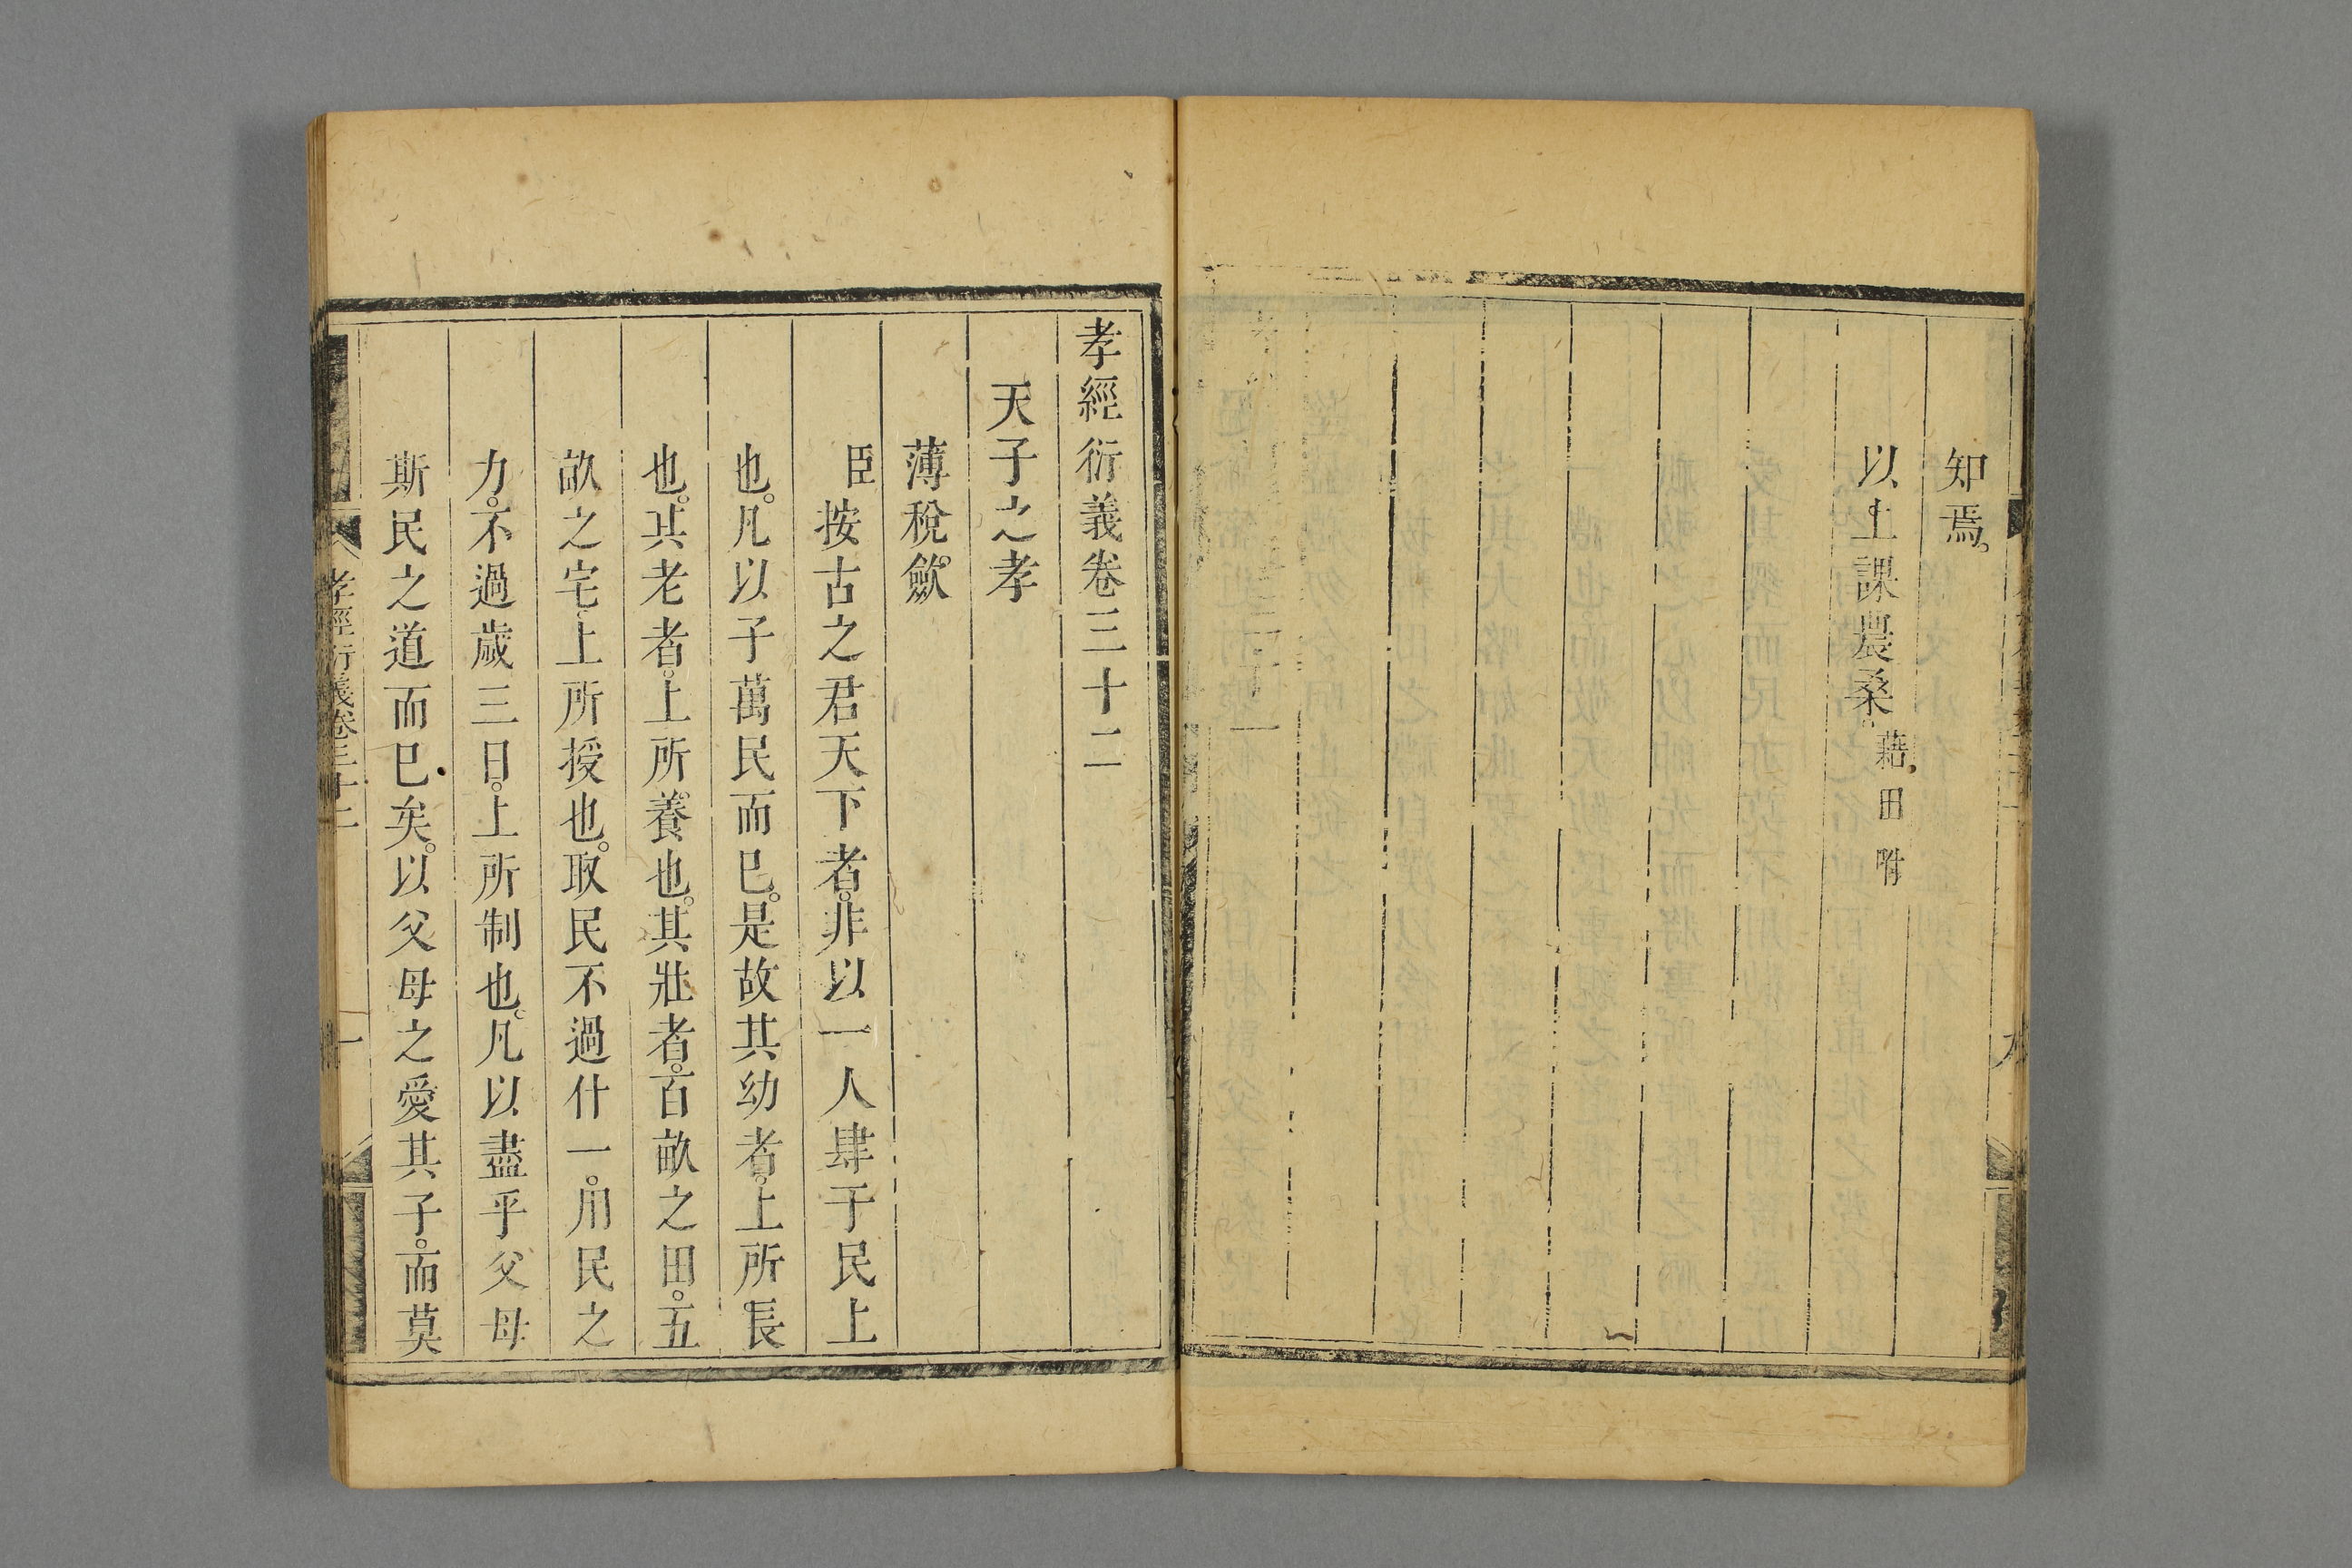 知焉。
以上課農桑。藉田附
孝經衍義卷三十二
天子之孝
薄稅歛
臣按古之君天下者。非以一人肆于民上
也。凡以子萬民而巳。是故其幼者。上所長
也。其老者。上所養也。其壯者。百畝之田。五
畝之宅。上所授也。取民不過什一。用民之
力。不過歲三日。上所制也。凡以盡乎父母
斯民之道而巳矣。以父母之愛其子。而莫
孝經衍義卷三十二
一